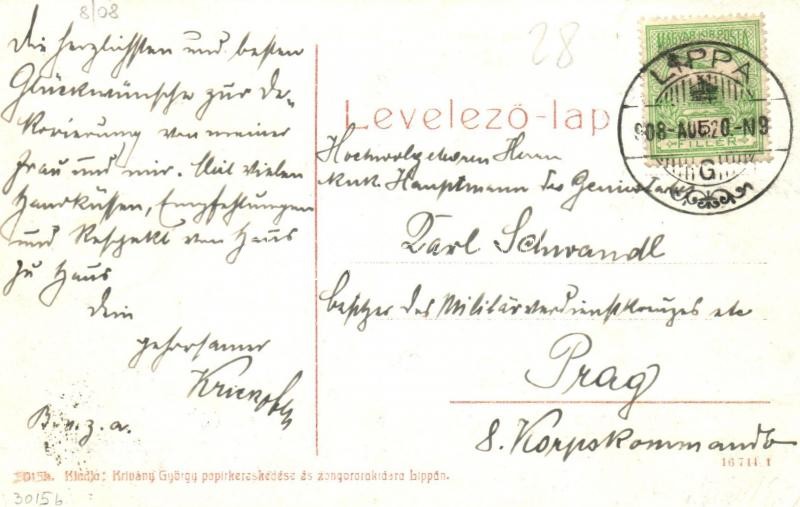 8/08
Die herzlichsten und besten
Glückwünsche zur De-
korierung von meiner
Frau und mir. Mit vielen
Handküssen, Empfehlungen
und Respekt von Haus
zu Haus
Dein
gehorsamer
B. z. a.
28
Levelező-lap
MAGYAR KIR. POSTA
FILLÉR
LIPPA
908-AUG 20.-N9
G
Hochwolgeboren Herrn
k.u.k. Hauptmann des Geniestabes
Karl Schwandl
besitzer des Militärverdienstkreuzes etc
Prag
8. Korpskommando
3015b. Kiadja: Krivány György papirkereskedése és zongoraraktára Lippán.
16744.1
3015b